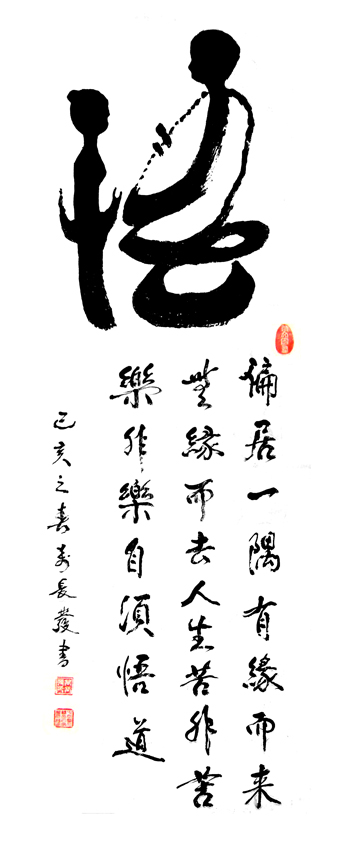 悟
偏居一隅有緣而来
無緣而去人生苦非苦
樂非樂自須悟道
己亥之春長發書